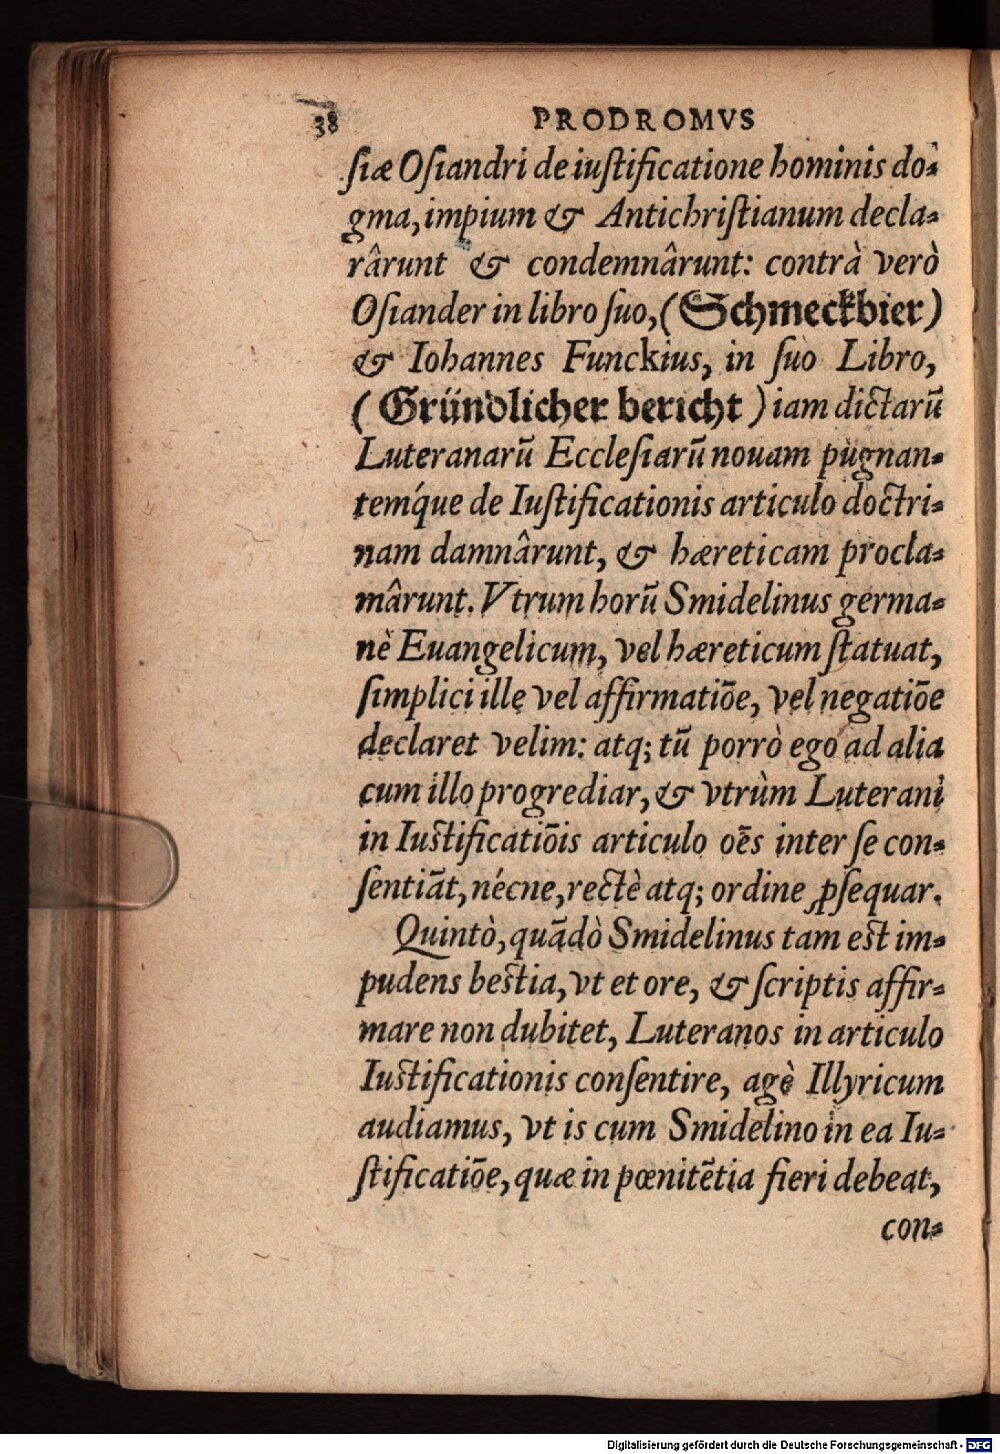 38 PRODROMVS
siæ Osiandri de iustificatione hominis do-
gma, impium & Antichristianum decla-
rârunt & condemnârunt: contrà verò
Osiander in libro suo, (Schmeckbier)
& Iohannes Funckius, in suo Libro,
(Gründlicher bericht) iam dictarũ
Luteranarũ Ecclesiarũ nouam pugnan-
temq́ue de Iustificationis articulo doctri-
nam damnârunt, & hæreticam procla-
mârunt. Vtrum horũ Smidelinus germa-
nè Euangelicum, vel hæreticum statuat,
simplici ille vel affirmatiõe, vel negatiõe
declaret velim: atq; tũ porrò ego ad alia
cum illo progrediar, & vtrùm Luterani
in Iustificatiõis articulo oẽs inter se con-
sentiãt, nécne, rectè atq; ordine ꝓsequar.
Quintò, quãdò Smidelinus tam est im-
pudens bestia, vt et ore, & scriptis affir-
mare non dubitet, Luteranos in articulo
Iustificationis consentire, agè Illyricum
audiamus, vt is cum Smidelino in ea Iu-
stificatiõe, quæ in pœnitẽtia fieri debeat,
con-
Digitalisierung gefördert durch die Deutsche Forschungsgemeinschaft - DFG